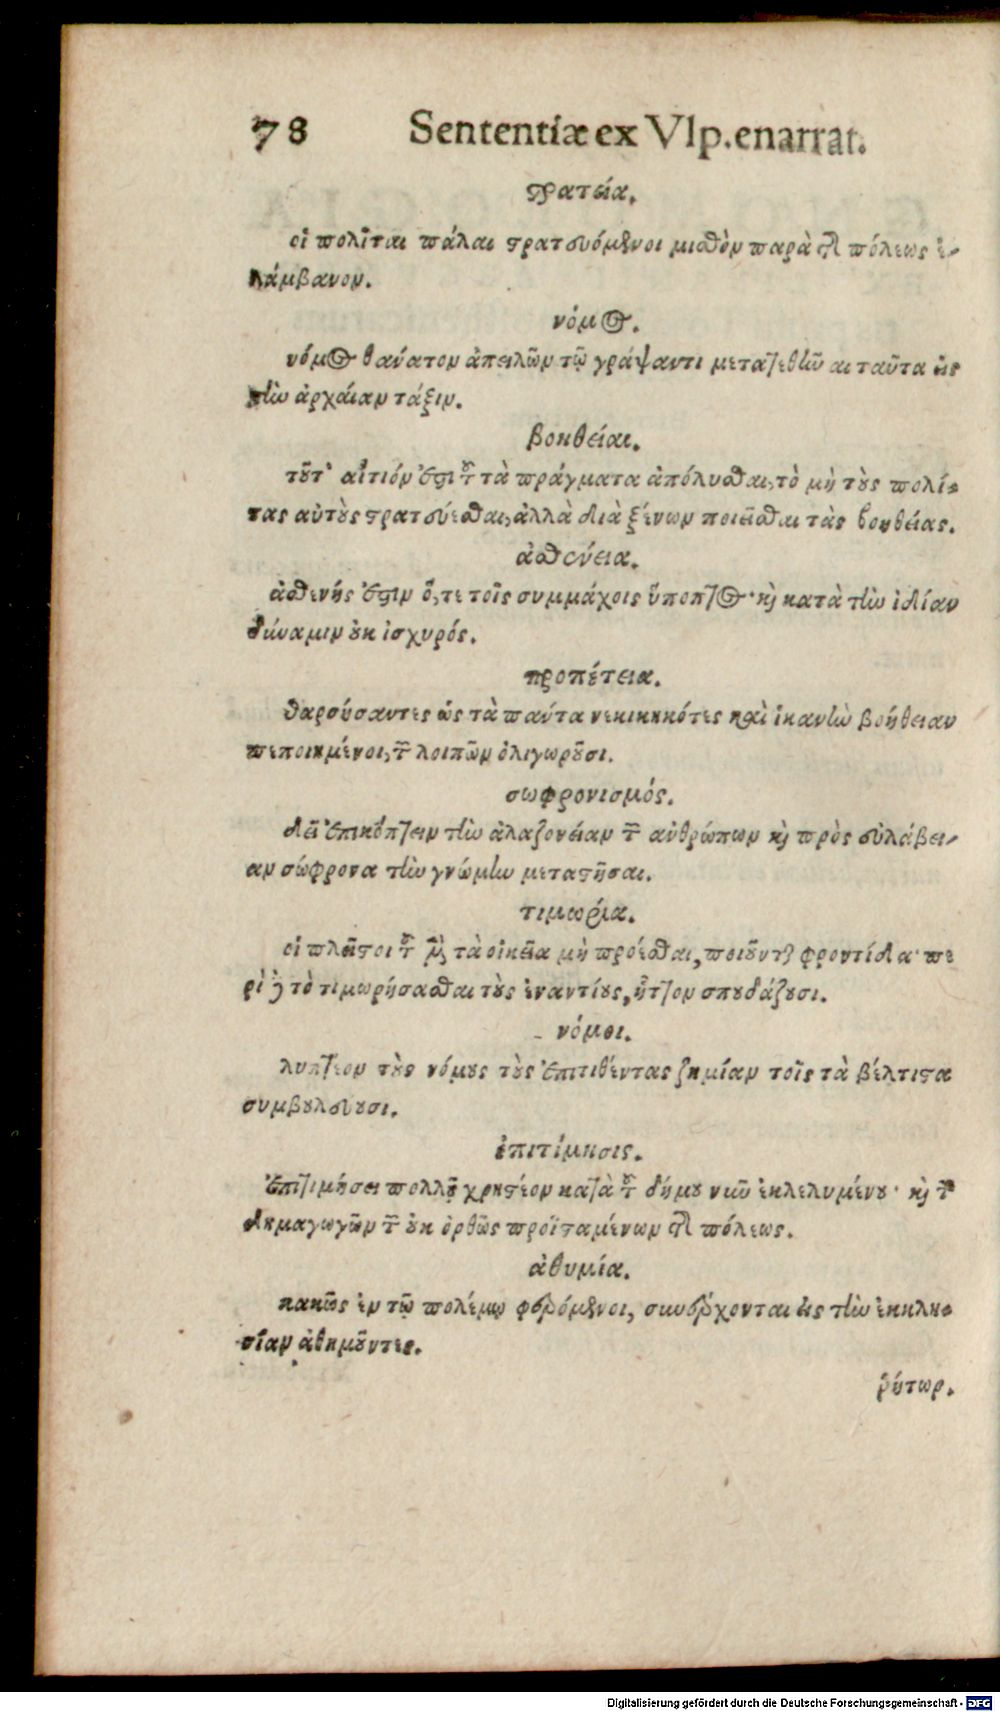 78 Sententiæ ex Vlp. enarrat.
στρατεία.
οἱ πολῖται πάλαι στρατευόμενοι μισθὸν παρὰ τῆς πόλεως ἐ-
λάμβανον.
νόμος.
νόμος θάνατον ἀπειλῶν τῷ γράψαντι μετατεθῆναι ταῦτα εἰς
τὴν ἀρχαίαν τάξιν.
βοηθείαι.
τοῦτ' αἴτιόν ἐστι τοῦ τὰ πράγματα ἀπόλυσθαι, τὸ μὴ τοὺς πολί-
τας αὐτοὺς στρατεύεσθαι, ἀλλὰ διὰ ξένων ποιεῖσθαι τὰς βοηθείας.
ἀσθένεια.
ἀσθενής ἐστιν ὅ, τε τοῖς συμμάχοις ὕποπτος· καὶ κατὰ τὴν ἰδίαν
δύναμιν οὐκ ἰσχυρός.
προπέτεια.
θαρσύσαντες ὡς τὰ πάντα νενικηκότες καὶ ἱκανὴν βοήθειαν
πεποιημένοι, τῶν λοιπῶν ὀλιγωροῦσι.
σωφρονισμός.
δεῖ ἐπικόπτειν τὴν ἀλαζονείαν τῶν ἀνθρώπων καὶ πρὸς εὐλάβει-
αν σώφρονα τὴν γνώμην μεταστῆσαι.
τιμωρία.
οἱ πλεῖστοι τοῦ μὲν τὰ οἰκεῖα μὴ προέσθαι, ποιοῦνται φροντίδα· πε
ρὶ δὲ τὸ τιμωρήσασθαι τοὺς ἐναντίους, ἧττον σπουδάζουσι.
νόμοι.
λυπτέον τοὺς νόμους τοὺς ἐπιτιθέντας ζημίαν τοῖς τὰ βέλτιστα
συμβουλεύουσι.
ἐπιτίμησις.
ἐπιτιμήσει πολλῇ χρηστέον κατὰ τοῦ δήμου νῦν ἐκλελυμένου· καὶ τῶν
δημαγωγῶν τῶν οὐκ ὀρθῶς προϊσταμένων τῆς πόλεως.
ἀθυμία.
κακῶς ἐν τῷ πολέμῳ φερόμενοι, συνέρχονται εἰς τὴν ἐκκλη-
σίαν ἀθημοῦντες.
ῥήτωρ.
Digitalisierung gefördert durch die Deutsche Forschungsgemeinschaft - DFG